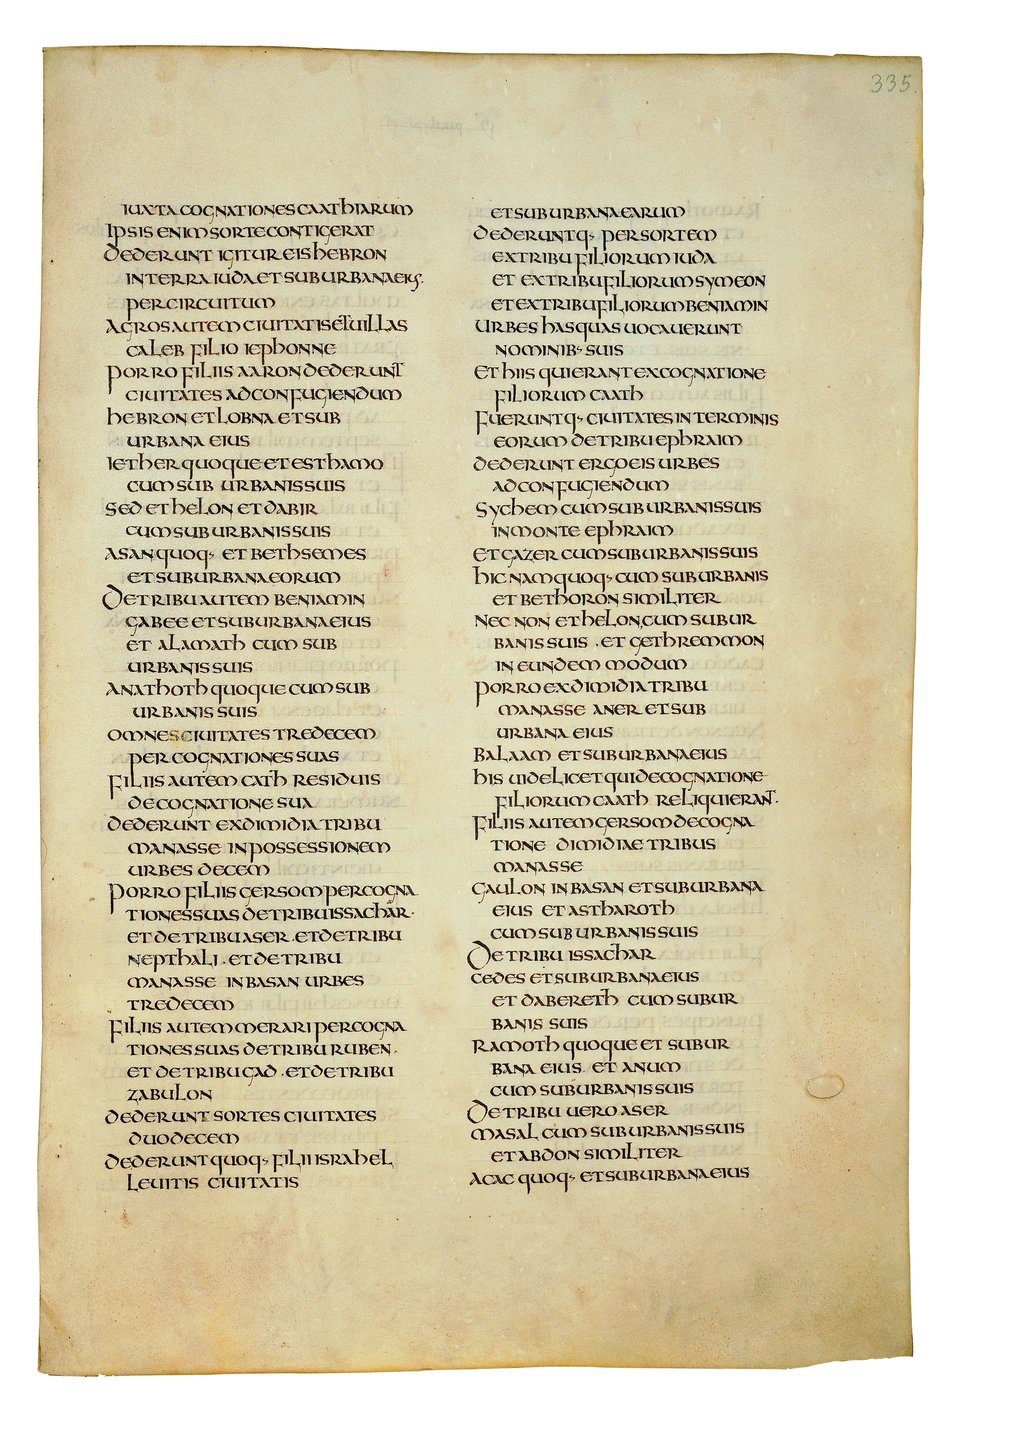 335.
IUXTA COGNATIONES CAATHIARUM
IPSIS ENIM SORTE CONTIGERAT
DEDERUNT IGITUR EIS HEBRON
IN TERRA IUDA ET SUBURBANA EIUS.
PER CIRCUITUM
AGROS AUTEM CIUITATIS ET UILLAS
CALEB FILIO IEPHONNE
PORRO FILIIS AARON DEDERUNT
CIUITATES AD CONFUGIENDUM
HEBRON ET LOBNA ET SUB
URBANA EIUS
IETHER QUOQUE ET ESTHAMO
CUM SUB URBANIS SUIS
SED ET HELON ET DABIR
CUM SUBURBANIS SUIS
ASAN QUOQ· ET BETHSEMES
ET SUBURBANA EORUM
DE TRIBU AUTEM BENIAMIN
GABEE ET SUBURBANA EIUS
ET ALAMATH CUM SUB
URBANIS SUIS
ANATHOTH QUOQUE CUM SUB
URBANIS SUIS
OMNES CIUITATES TREDECEM
PER COGNATIONES SUAS
FILIIS AUTEM CATH RESIDUIS
DE COGNATIONE SUA
DEDERUNT EX DIMIDIA TRIBU
MANASSE IN POSSESSIONEM
URBES DECEM
PORRO FILIIS GERSOM PER COGNA
TIONES SUAS DE TRIBU ISSACHAR·
ET DE TRIBU ASER · ET DE TRIBU
NEPTHALI · ET DE TRIBU
MANASSE IN BASAN URBES
TREDECEM
FILIIS AUTEM MERARI PER COGNA
TIONES SUAS DE TRIBU RUBEN·
ET DE TRIBU GAD · ET DE TRIBU
ZABULON
DEDERUNT SORTES CIUITATES
DUODECEM
DEDERUNT QUOQ· FILII ISRAHEL
LEUITIS CIUITATIS
ET SUBURBANA EARUM
DEDERUNTQ· PER SORTEM
EX TRIBU FILIORUM IUDA
ET EX TRIBU FILIORUM SYMEON
ET EX TRIBU FILIORUM BENIAMIN
URBES HAS QUAS UOCAUERUNT
NOMINIB· SUIS
ET HIIS QUI ERANT EX COGNATIONE
FILIORUM CAATH
FUERUNTQ· CIUITATES IN TERMINIS
EORUM DE TRIBU EPHRAIM
DEDERUNT ERGO EIS URBES
AD CONFUGIENDUM
SYCHEM CUM SUBURBANIS SUIS
IN MONTE EPHRAIM
ET GAZER CUM SUBURBANIS SUIS
HICNAM QUOQ· CUM SUBURBANIS
ET BETHORON SIMILITER
NEC NON ET HELON, CUM SUBUR
BANIS SUIS · ET GETHREMMON
IN EUNDEM MODUM
PORRO EX DIMIDIA TRIBU
MANASSE ANER ET SUB
URBANA EIUS
BALAAM ET SUBURBANA EIUS
HIS UIDELICET QUI DE COGNATIONE
FILIORUM CAATH RELIQUI ERANT·
FILIIS AUTEM GERSOM DE COGNA
TIONE DIMIDIAE TRIBUS
MANASSE
GAULON IN BASAN ET SUBURBANA
EIUS ET ASTHAROTH
CUM SUBURBANIS SUIS
DE TRIBU ISSACHAR
CEDES ET SUBURBANA EIUS
ET DABERETH CUM SUBUR
BANIS SUIS
RAMOTH QUOQUE ET SUBUR
BANA EIUS. ET ANUM
CUM SUBURBANIS SUIS
DE TRIBU UERO ASER
MASAL CUM SUBURBANIS SUIS
ET ABDON SIMILITER
ACAC QUOQ· ET SUBURBANA EIUS